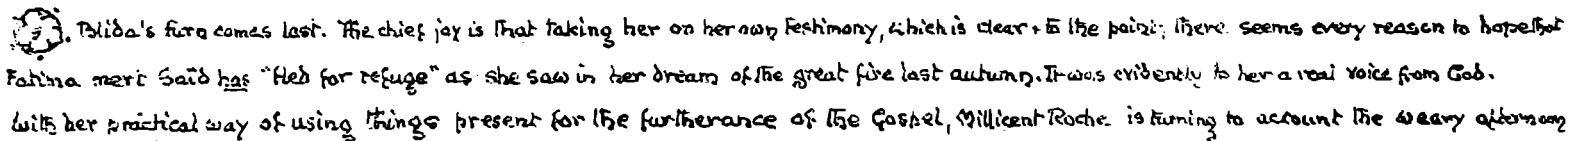 Blida's turn comes last. The chief joy is that taking her on her own testimony, which is clear & to the point; there seems every reason to hope that
Fatima mert Saïd has "fled for refuge" as she saw in her dream of the great fire last autumn. It was evidently to her a real voice from God.
With her practical way of using things present for the furtherance of the Gospel, Millicent Roche is turning to account the weary afternoon